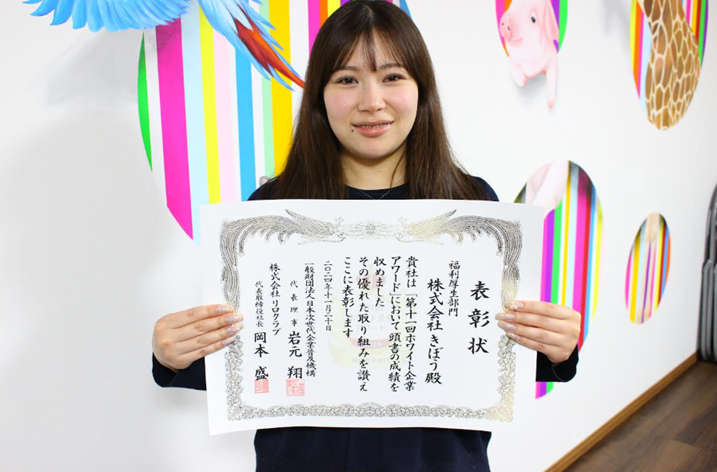 表彰状
福利厚生部門
株式会社きぼう殿
貴社は「第十一回ホワイト企業
アワード」において頭書の成績を
収めました
その優れた取り組みを讃え
ここに表彰します
二〇二四年十一月二十日
一般財団法人日本次世代企業普及機構
代表理事 岩元 翔
株式会社リロクラブ
代表取締役社長 岡本 盛